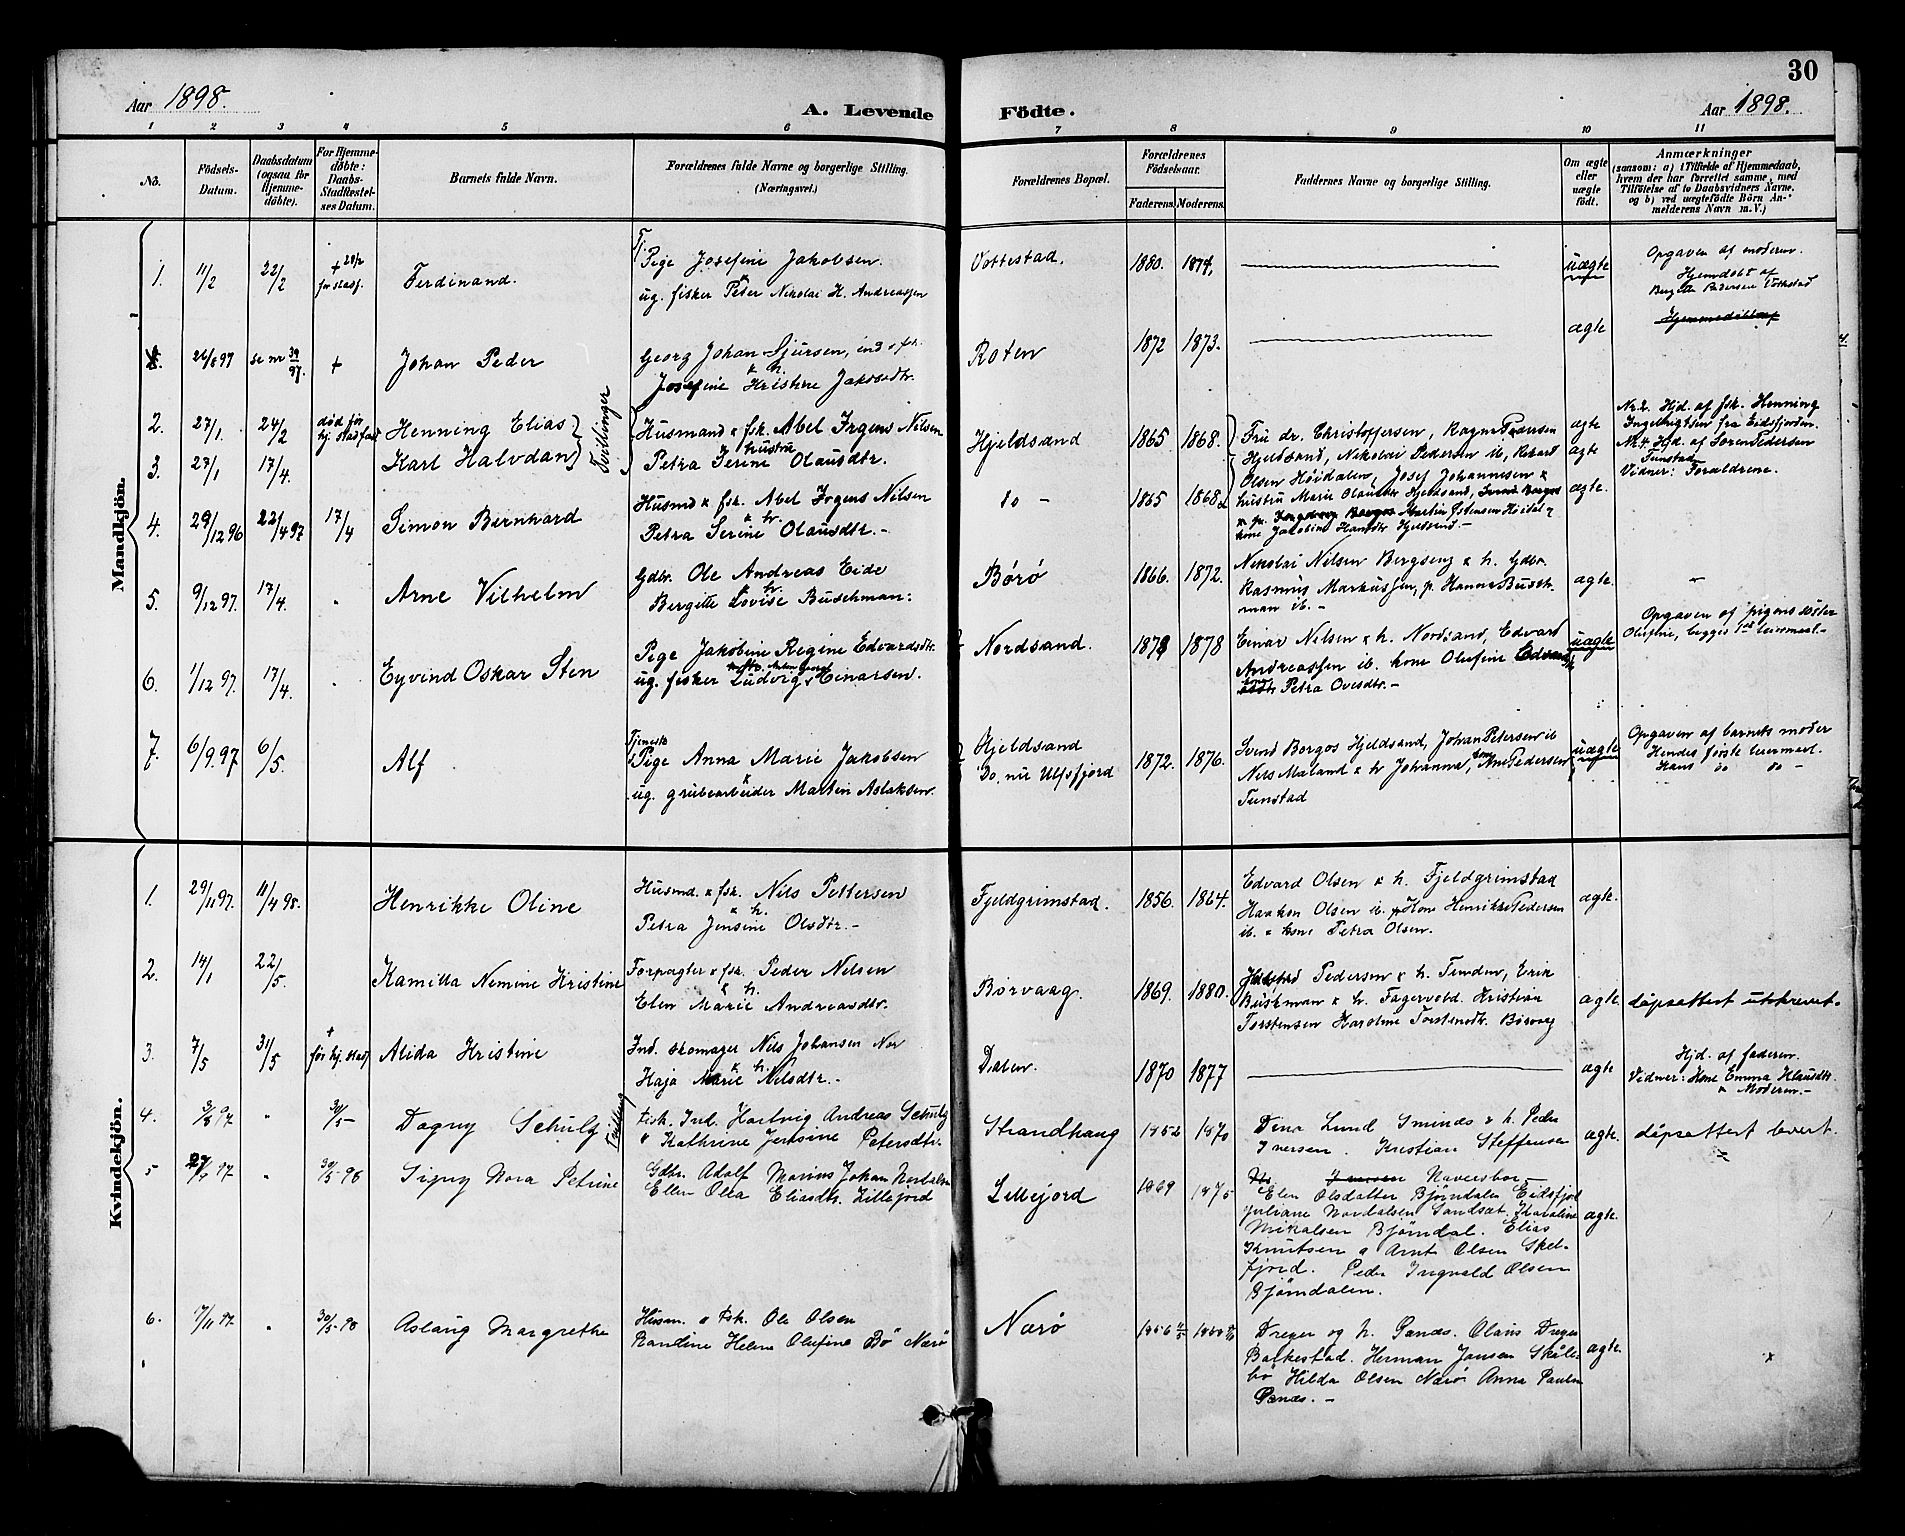 30
Aar 1898.
A. Levende
Födte.
Aar 1898.
1 2 3 4 5 6 7 8 9 10 11
No.
Födsels-Datum.
Daabsdatum (ogsaa for Hjemme-döbte).
For Hjemme-döbte: Daabs-Stadfæstel-ses Datum.
Barnets fulde Navn.
Forældrenes fulde Navne og borgerlige Stilling.
(Næringsvei.)
Forældrenes Bopæl.
Forældrenes Födselsaar.
Faderens. Moderens.
Faddernes Navne og borgerlige Stilling.
Om ægte eller uægte födt.
Anmærkninger
(saasom: a) i Tilfælde af Hjemmedaab, hvem der har forrettet samme, med Tilföielse af to Daabsvidners Navne, og b) ved uægtefödte Börn An-melderens Navn m. V.)
Mandkjön.
1. 11/2 22/2 + 28/2 før stadf. Ferdinand.
Pige Josefine Jakobsen
ug. fisker Peder Nikolai H. Andreassen
Vottestad. 1880. 1874. uægte
Opgaven af moderen.
Hjemdøbt af
26/8 97 se nr 39/97. + Johan Peder
Georg Johan Sjursen, ind. & fsk.
& h.
Josefine Kristine Jakobsdtr.
Roten 1872 1873. ægte
2. 27/1. 24/2 død før hj. stadfæst Henning Elias
3. 27/1 17/4. Karl Halvdan
Tvillinger
Husmand & fsk. Abel Irgens Nilsen
hustru
Petra Serine Olausdtr.
Hjeldsand 1865 1868.
Fru dr. Christoffersen, Ragna Pedersen
Hjeldsand, Nikolai Pedersen ib, Rikard
Olsen Höidalen, Josef Johannesen &
hustru Marie Olausdtr Hjeldsand,
ægte
ægte
Nr. 2. Hjd. af fsk. Henning
Ingebrigtsen fra Eidsfjorden.
Nr. 4. Hjd. af Søren Pedersen
Tunstad
Vidner: Forældrene.
4. 29/12 96 22/4 97 17/4 Simon Bernhard
Husmd & fsk. Abel Irgens Nilsen
& h.
Petra Serine Olausdtr. -
do - 1865 1868 ægte.
kone Jakobine Hansdtr Hjeldsand -
5. 9/12 97. 17/4. Arne Vilhelm
Gdbr. Ole Andreas Eide
& h.
Bergitte Lovise Buschman:
Börö 1866 1872.
Nikolai Nilsen Bergseng & h. Gdbr.
Rasmus Markussen, p. Hanna Busch-
man ib. -
ægte.
6. 1/12 97. 17/4. Eyvind Oskar Sten
Pige Jakobine Regine Edvardsdtr.
ug. fisker Ludvig Einarsen.
Nordsand. 1878
Einar Nilsen & h. Nordsand, Edvard
Andreassen ib. kone Olufine
Petra Ovesdtr. -
uægte
Opgaven af pigens søster
Olufine, begges 1ste leiermaal. -
7. 6/9. 97 6/5. Alf
Tjenest.
Pige Anna Marie Jakobsen
&
ug. grubearbeider Martin Aslaksen.
Hjeldsand
Do. nu Ulfsfjord
1872. 1876.
Svend Borgos Hjeldsand, Johan Petersen ib
Nils Maland & h Johanna, kone Ane Pedersen
Tunstad
uægte
Opgaven af barnets moder
Hendes første leiermaal.
Hans do do -
Kvindekjön.
1. 29/11 97. 11/4 98. Henrikke Oline
Husmd. & fsk. Nils Pettersen
& h.
Petra Jensine Olsdtr. -
Fjeldgrimstad. 1856. 1864.
Edvard Olsen & h. Fjeldgrimstad
Haakon Olsen ib. Kone Henrikke Pedersen
ib. & kone Petra Olsen.
ægte.
2. 14/1 22/5. Kamilla Nemine Kristine
Forpagter & fsk. Peder Nilsen
& h.
Elen Marie Andreasdtr.
Borvaag. 1869. 1880.
Pedersen & h. Tunden, Erik
Buskman & h. Fagervold. Kristian
Torstensen Karoline Torstensdtr. Börvaag
ægte. döpsattest utskrevet.
3. 7/5 31/5 + før hj. stadf Alida Kristine
Ind. skomager Nils Johansen Nor
& h.
Kaja Marie Nilsdtr. -
Dalen. 1870 1877 ægte.
Hjd. af faderen.
Vidner: Kone Emma Klausdtr.
& Moderen. -
4. 3/8 97 " 30/5 - Dagny Schulz
Fisk. Ind. Hartvig Andreas Schulz
" Kathrine Jensine Petersdtr.
Strandhaug 1852 1870
Dina Lund Smines & h. Peder
Iversen. Kristian Steffensen
ægte. döpsattest levert.
5 97 " 30/5 98 Signy Nora Petrine
Gdbr. Adolf Marius Johan Nordalsen
Ellen Olea Eliasdtr. Lillefjord
Lillejord 1869 1875
Naversbor -
Elen Olsdatter Björndalen Eidsfjord
Juliane Nordalsen Sandsæt. Karoline
Mikalsen Björndal. Elias
Knutsen & Arnt Olsen Skel-
fjord. Peder Ingvald Olsen
Björndalen.
ægte.
6. 7/11 97. " 30/5 98 Aslaug Margrethe
Husm. & Fsk. Ole Olsen
Randine Helene Olufine Bö Nærö
Nærö 1856
Dreyer og h. Sanæs. Olaus Dreyer
Balkestad. Herman Jansen Skåle-
bö Hilda Olsen Nærö Anna Paulsen
Sanæs. -
ægte.